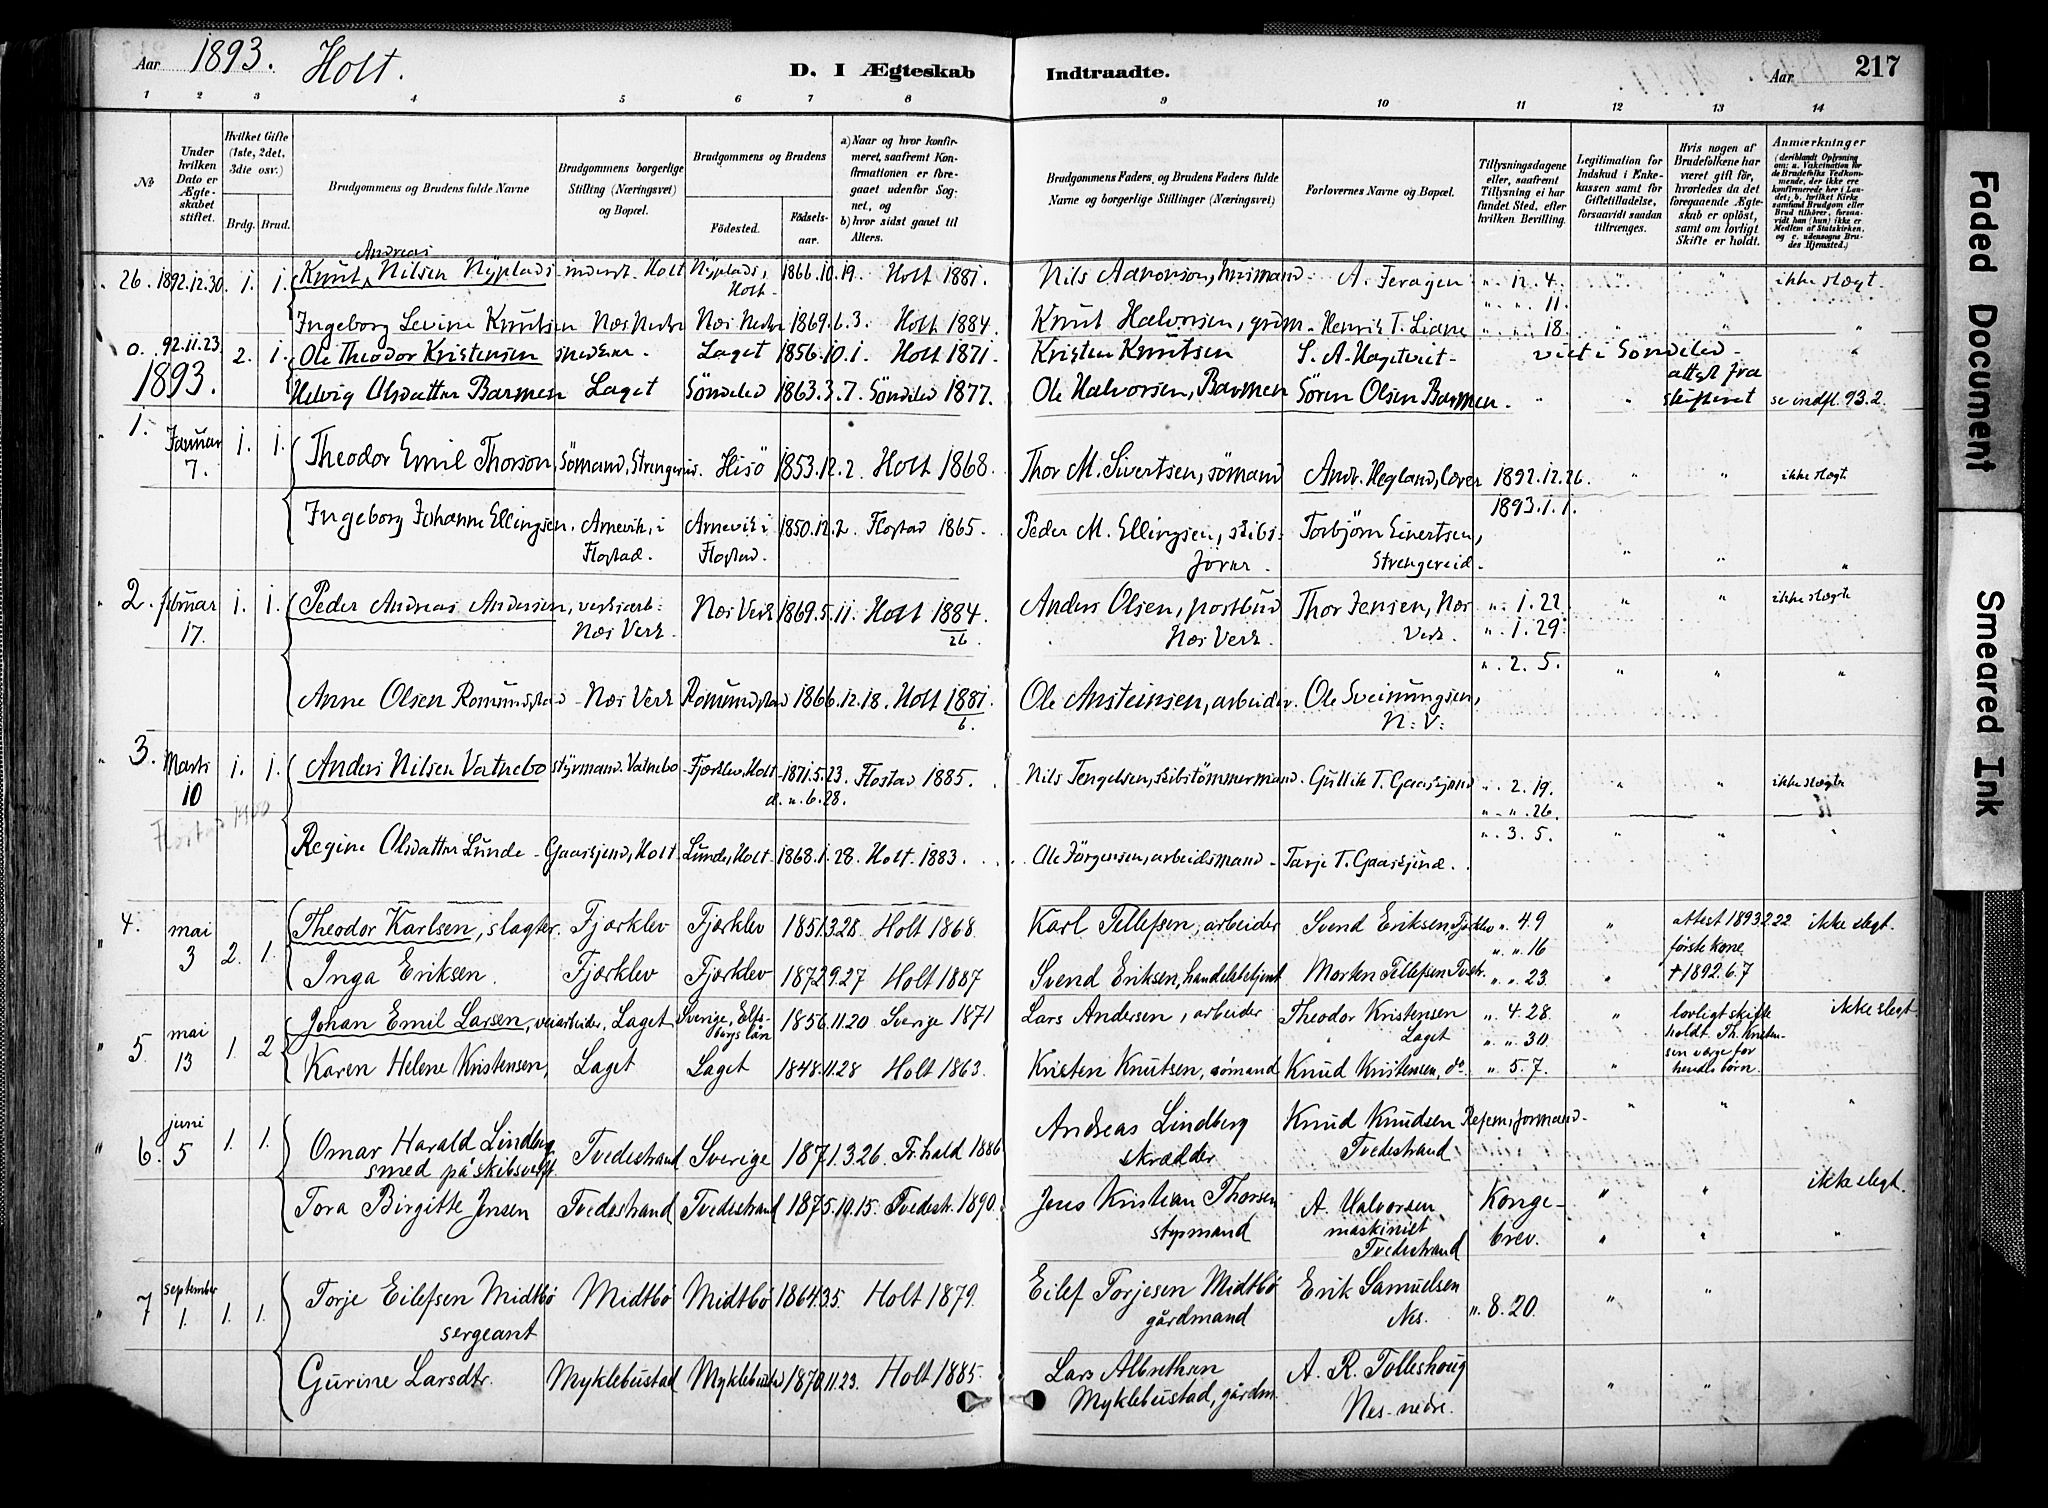 Aar 1893. Holt.
D. I Ægteskab Indtraadte.
Aar 217
1 2 3 4 5 6 7 8 9 10 11 12 13 14
№
Under hvilken Dato er Ægteskabet stiftet.
Hvilket Gifte (1ste, 2det, 3die osv.)
Brdg. Brud.
Brudgommens og Brudens fulde Navne
Brudgommens borgerlige Stilling (Næringsvei) og Bopæl.
Brudgommens og Brudens
Fødested.
Fødselsaar.
a) Naar og hvor konfirmeret, saafremt Konfirmationen er foregaaet udenfor Sognet, og
b) hvor sidst gaaet til Alters.
Brudgommens Faders, og Brudens Faders fulde Navne og borgerlige Stillinger (Næringsvei)
Forlovernes Navne og Bopæl.
Tillysningsdagene eller, saafremt Tillysning ei har fundet Sted, efter hvilken Bevilling.
Legitimation for Indskud i Enkekassen samt for Giftetilladelse, forsaavidt saadan tiltrænges.
Hvis nogen af Brudefolkene har været gift før, hvorledes da det foregaaende Ægteskab er opløst, samt om lovligt Skifte er holdt.
Anmærkninger
(deriblandt Oplysning om: a. Vaccination for de Brudefolks Vedkommende, der ikke ere konfirmerede her i Landet; b. hvilket Kirkesamfund Brudgom eller Brud tilhører, forsaavidt han (hun) ikke er Medlem af Statskirken, og c. udensogns Brudes Hjemsted.)
Andreas
26. 1892.12.30. 1. 1. Knut Nilsen Nyplads - inderst - Holt Nyplads, Holt. 1866.10.19. Holt 1881. Nils Aanonsen, husmand. A. Feragen " 12. 4. " " " ikke slegt.
" " 11.
Ingeborg Levine Knutsen Næs Nedre Næs Nedre 1869.6.3. Holt 1884. Knut Halvorsen, grdm. Henrik T. Liane " " 18.
0. 92.11.23. 2. 1. Ole Theodor Kristensen Laget 1856.10.1. Holt 1871. Kristen Knutsen S. A. Hagetveit viet i Søndeled -
1893. Helvig Olsdatter Barmen Laget Søndeled 1863.3.7. Søndeled 1877. Ole Halvorsen, Barmen Søren Olsen Barmen. attest fra skifteret se indfl. 93.2.
1. Januar 7. 1. 1. Theodor Emil Thorson, Sømand, Strengereid. Hisö 1853.12.2. Holt 1868. Thor M. Sivertsen, sømand Andr. Hegland, lærer 1892.12.26. " " ikke slegt
1893.1.1.
Ingeborg Johanne Ellingsen, Arnevik, i Flostad. Arnevik i Flostad. 1850.12.2. Flostad 1865. Peder M. Ellingsen, skibs- Torbjørn Sivertsen, Strengereid. " " "
2. februar 17. 1. 1. Peder Andreas Andersen, verksarb: Næs Verk. Næs Verk 1869.5.11. Holt 1884. 26. Anders Olsen, postbud Næs Verk. Thor Jensen, Næs Verk. " 1. 22. " " ikke slegt
" 1. 29.
" 2. 5.
Anne Olsen Romundstad Næs Verk Romundstad 1866.12.18. Holt 1881. 6. Ole Ansteinsen, arbeider. Ole Sveinungsen, N: V: " " "
3. Marts 10 1. 1. Anders Nilsen Vatnebo styrmand. Vatnebo Fjærklev, Holt 1871.5.23. Flostad 1885. Nils Tengelsen, skibstømmermand. Gullik T. Gaasejend " 2. 19. " " ikke slegt
d. u. 6. 28. " " 26.
" 3. 5.
Regine Olsdatter Lunde - Gaasejend, Holt Lunde, Holt 1868.1.28. Holt 1883. Ole Jörgensen, arbeidsmand - Tarje T. Gaasejend. " " "
4. mai 3 2. 1. Theodor Karlsen, slagter. Fjærklev Fjærklev 1851.3.28 Holt 1868. Karl Tellefsen, arbeider Svend Eriksen Fjærklev " 4.9 " attest 1893.2.22 ikke slegt.
" " 16 første kone
Inga Eriksen. Fjærklev Fjærklev 1872.9.27 Holt 1887 Svend Eriksen, handelsbetjent Morten Tellefsen Tvestr. " " 23. " † 1892.6.7
5. mai 13 1. 2 Johan Emil Larsen, veiarbeider, Laget Sverige, Elfsborgs län 1856.11.20 Sverige 1871 Lars Andersen, arbeider Theodor Kristensen Laget " 4.28 " lovligt skifte ikke slegt
" " 30. holdt. Th. Kristensen værge for hendes børn
Karen Helene Kristensen, Laget Laget 1848.11.28 Holt 1863. Kristen Knutsen, sømand Knud Kristensen, do " 5.7. "
6. juni 5 1. 1. Omar Harald Lindberg smed på skibsverft Tvedestrand Sverige 1871.3.26. Fr.hald 1886 Andreas Lindberg skrædder Knud Knudsen Tvedestrand " " "
Tora Birgitte Jensen Tvedestrand Tvedestrand 1875.10.15. Tvedestr. 1890. Jens Kristian Thorsen styrmand A. Halvorsen maskinist Tvedestrand Kongebrev. " " ikke slegt.
7 september 1. 1. 1. Torje Eilefsen Midtbö sergeant Midtbö Midtbö 1864.3.5. Holt 1879. Eilef Torjesen Midtbö gårdmand Erik Samuelsen Nes. " 8. 20. " "
Gurine Larsdtr. Myklebustad Myklebustad 1870.11.23. Holt 1885. Lars Albrethsen Myklebustad, gårdm. A. R. Tolleshoug Nes nedre. " "
Faded Document
Smeared Ink